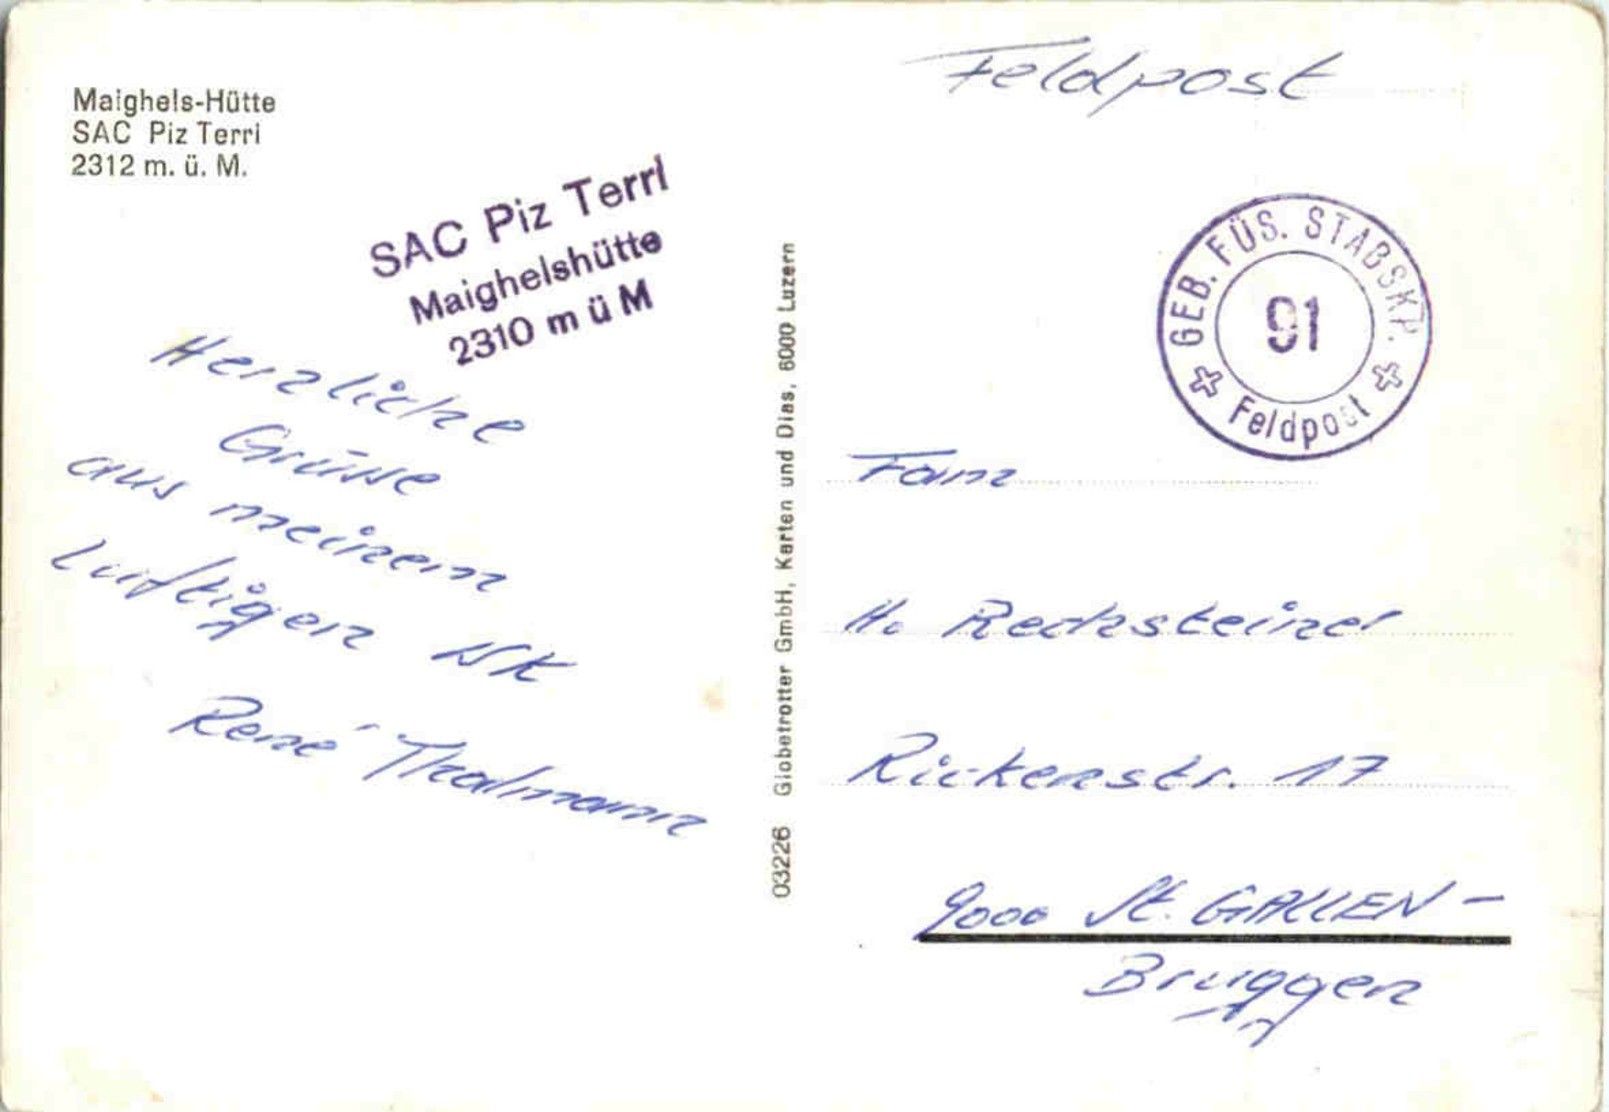 Maighels-Hütte
SAC Piz Terri
2312 m. ü. M.
SAC Piz Terri
Maighelshütte
2310 m ü M
Herzliche
Grüsse
aus meinem
luftigen WK
René Thalmann
03226 Globetrotter GmbH, Karten und Dias, 6000 Luzern
Feldpost
GEB. FÜS. STABSKP.
91
Feldpost
Fam
H. Rechsteiner
Rickenstr. 17
9000 St. GALLEN -
Bruggen